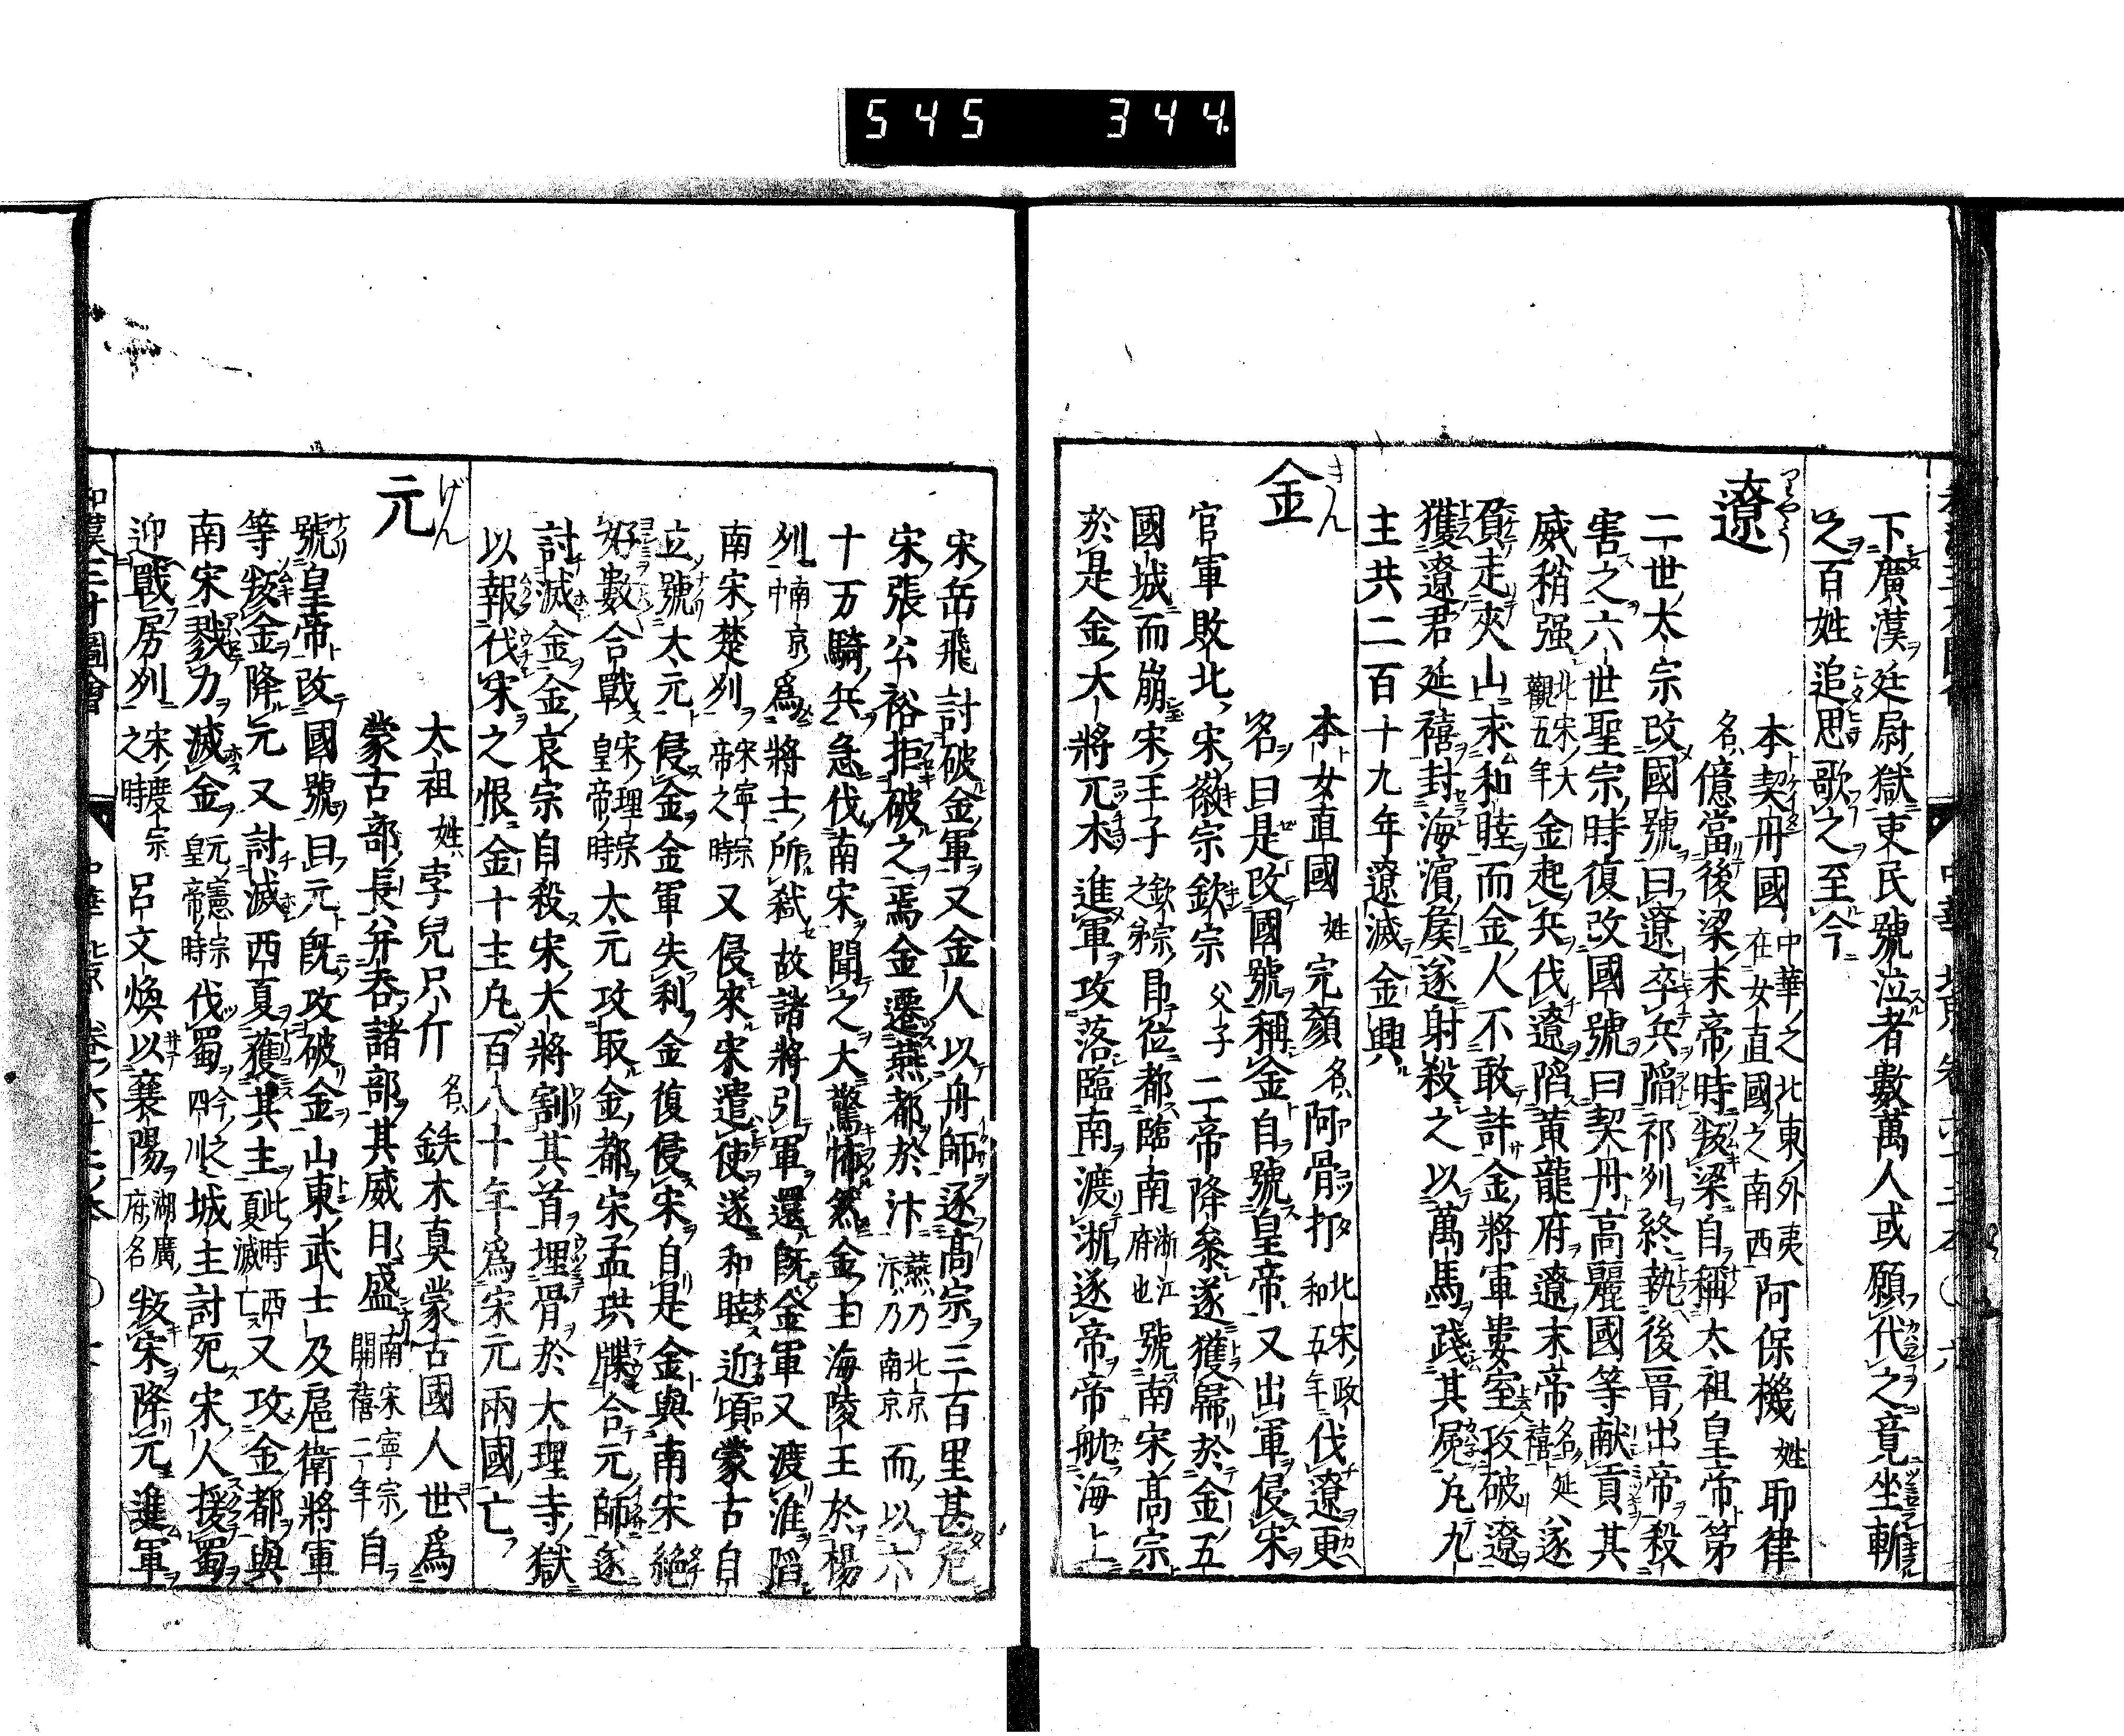 545 344
下廣漢廷尉獄吏民號泣者數萬人或願代之竟坐斬
之百姓追思歌之至今
遼 りやう
本契丹國 中華之北東外夷在女直國之南西 阿保機 姓耶律
名億當後梁末帝時叛梁自稱太祖皇帝第
二世太宗改國號曰遼卒兵陷祁刕終執後晋出帝殺
害之六世聖宗時復改國號曰契丹高麗國等献貢其
威稍强 北宋大觀五年 金起兵伐遼陷黄龍府遼末帝 名延禧 遂
負走夾山求和睦而金人不敢許金將軍婁室攻破遼
獲遼君延禧封海濱矦遂射殺之以萬馬踐其屍凡九
主共二百十九年遼滅金興
金 きん
本女直國 姓完顔名阿骨打 北宋政和五年 伐遼更
名曰是改國號稱金自號皇帝又出軍侵宋
官軍敗北宋徽宗欽宗 父子 二帝降參遂獲歸於金五
國城而崩宋王子 欽宗之弟 即位都臨南 浙江府也 號南宋高宗
於是金大將兀朮進軍攻落臨南渡浙逐帝帝航海上
宋岳飛討破金軍又金人以舟師逐高宗三百里甚危
宋張公裕拒破之焉金遷燕都於汴 燕乃北京汴乃南京 而以六
十万騎兵急伐南宋聞之大驚怖然金主海陵王於楊
刕 南京中 爲將士所弑故諸將引軍還既金軍又渡淮陷
南宋楚刕 宋寧宗帝之時 又侵來宋遣使遂和睦近頃蒙古自
立號大元侵金金軍失利金復侵宋自是金與南宋絕
好數合戰 宋理宗皇帝時 大元攻取金都宋孟珙牒合元師遂
討滅金金哀宗自殺宋大將割其首埋骨於大理寺獄
以報伐宋之恨金十主凡百八十年爲宋元兩國亡
元 げん
太祖 姓孛兒只斤 名鉄木真蒙古國人世爲
蒙古部長并吞諸部其威日盛 南宋寧宗開禧二年 自
號皇帝改國號曰元既攻破金山東武士及扈衛將軍
等叛金降元又討滅西夏獲其主 此時西夏滅亡 又攻金都與
南宋戮力滅金 元憲宗皇帝時 伐蜀 今之四川 城主討死宋人援蜀
迎戰房刕 宋度宗之時 呂文煥以襄陽 湖廣府名 叛宋降元進軍
和漢三才圖會 中華 北京 卷ノ六十二ノ本 〇